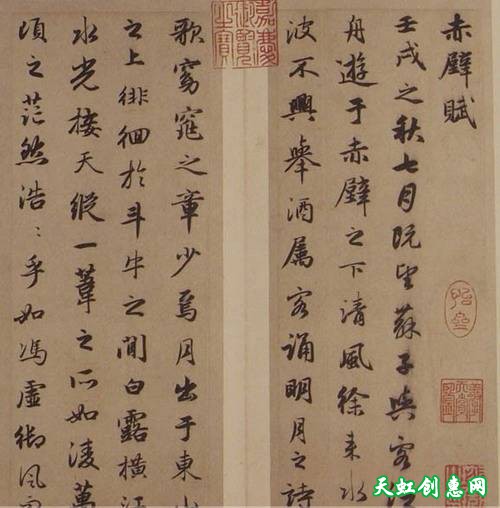 赤壁賦
壬戌之秋七月既望蘇子與客泛
舟遊于赤壁之下清風徐来水
波不興舉酒属客誦明月之詩
歌窈窕之章少焉月出于東山
之上徘徊於斗牛之間白露橫江
水光接天縱一葦之所如凌萬
頃之茫然浩〻乎如馮虛御風而
嘉慶御覽之寶
天虹创惠网